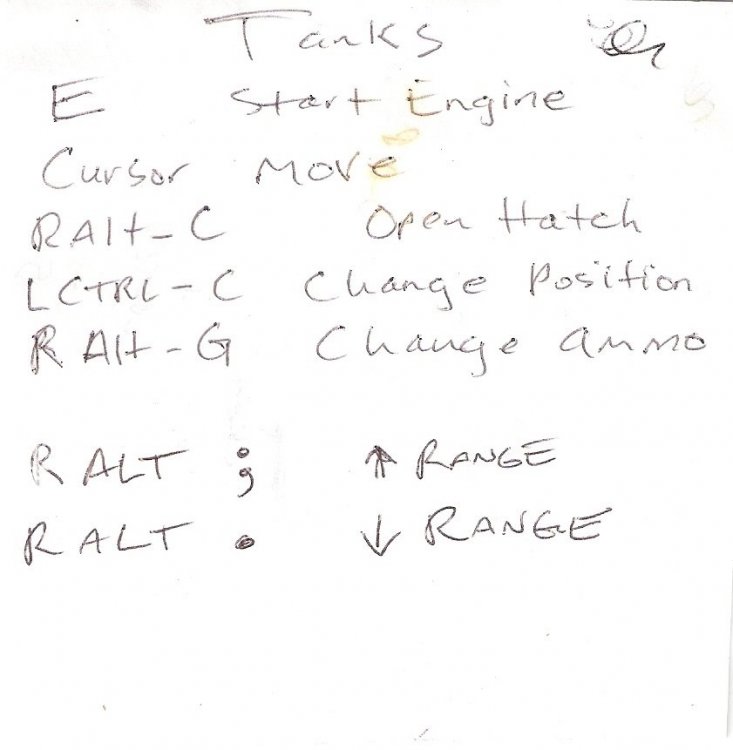 Tanks
E Start Engine
Cursor Move
RAlt-C Open Hatch
LCTRL-C Change Position
RAlt-G Change ammo
RALT ; ↑ RANGE
RALT . ↓ RANGE